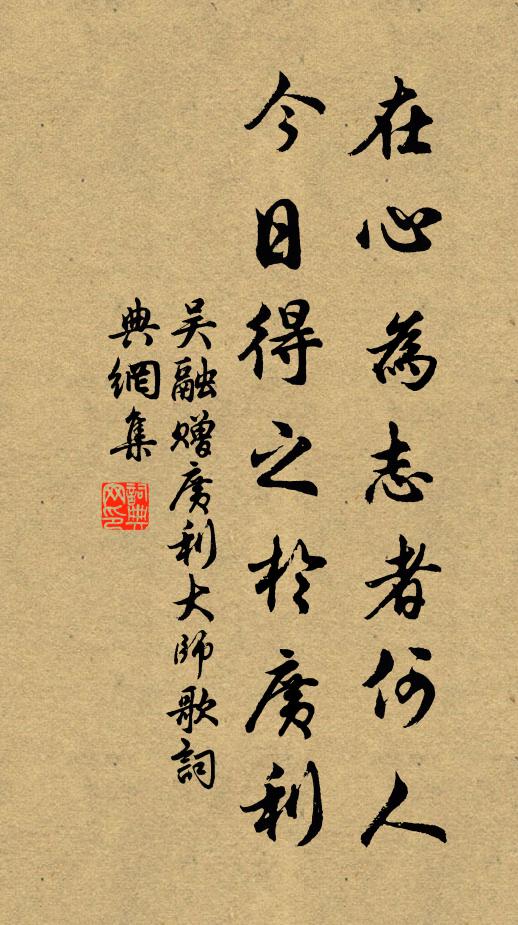 在心為志者何人
今日得之於廣利
吳融贈廣利大師歌詞
典網集
詞典
网印